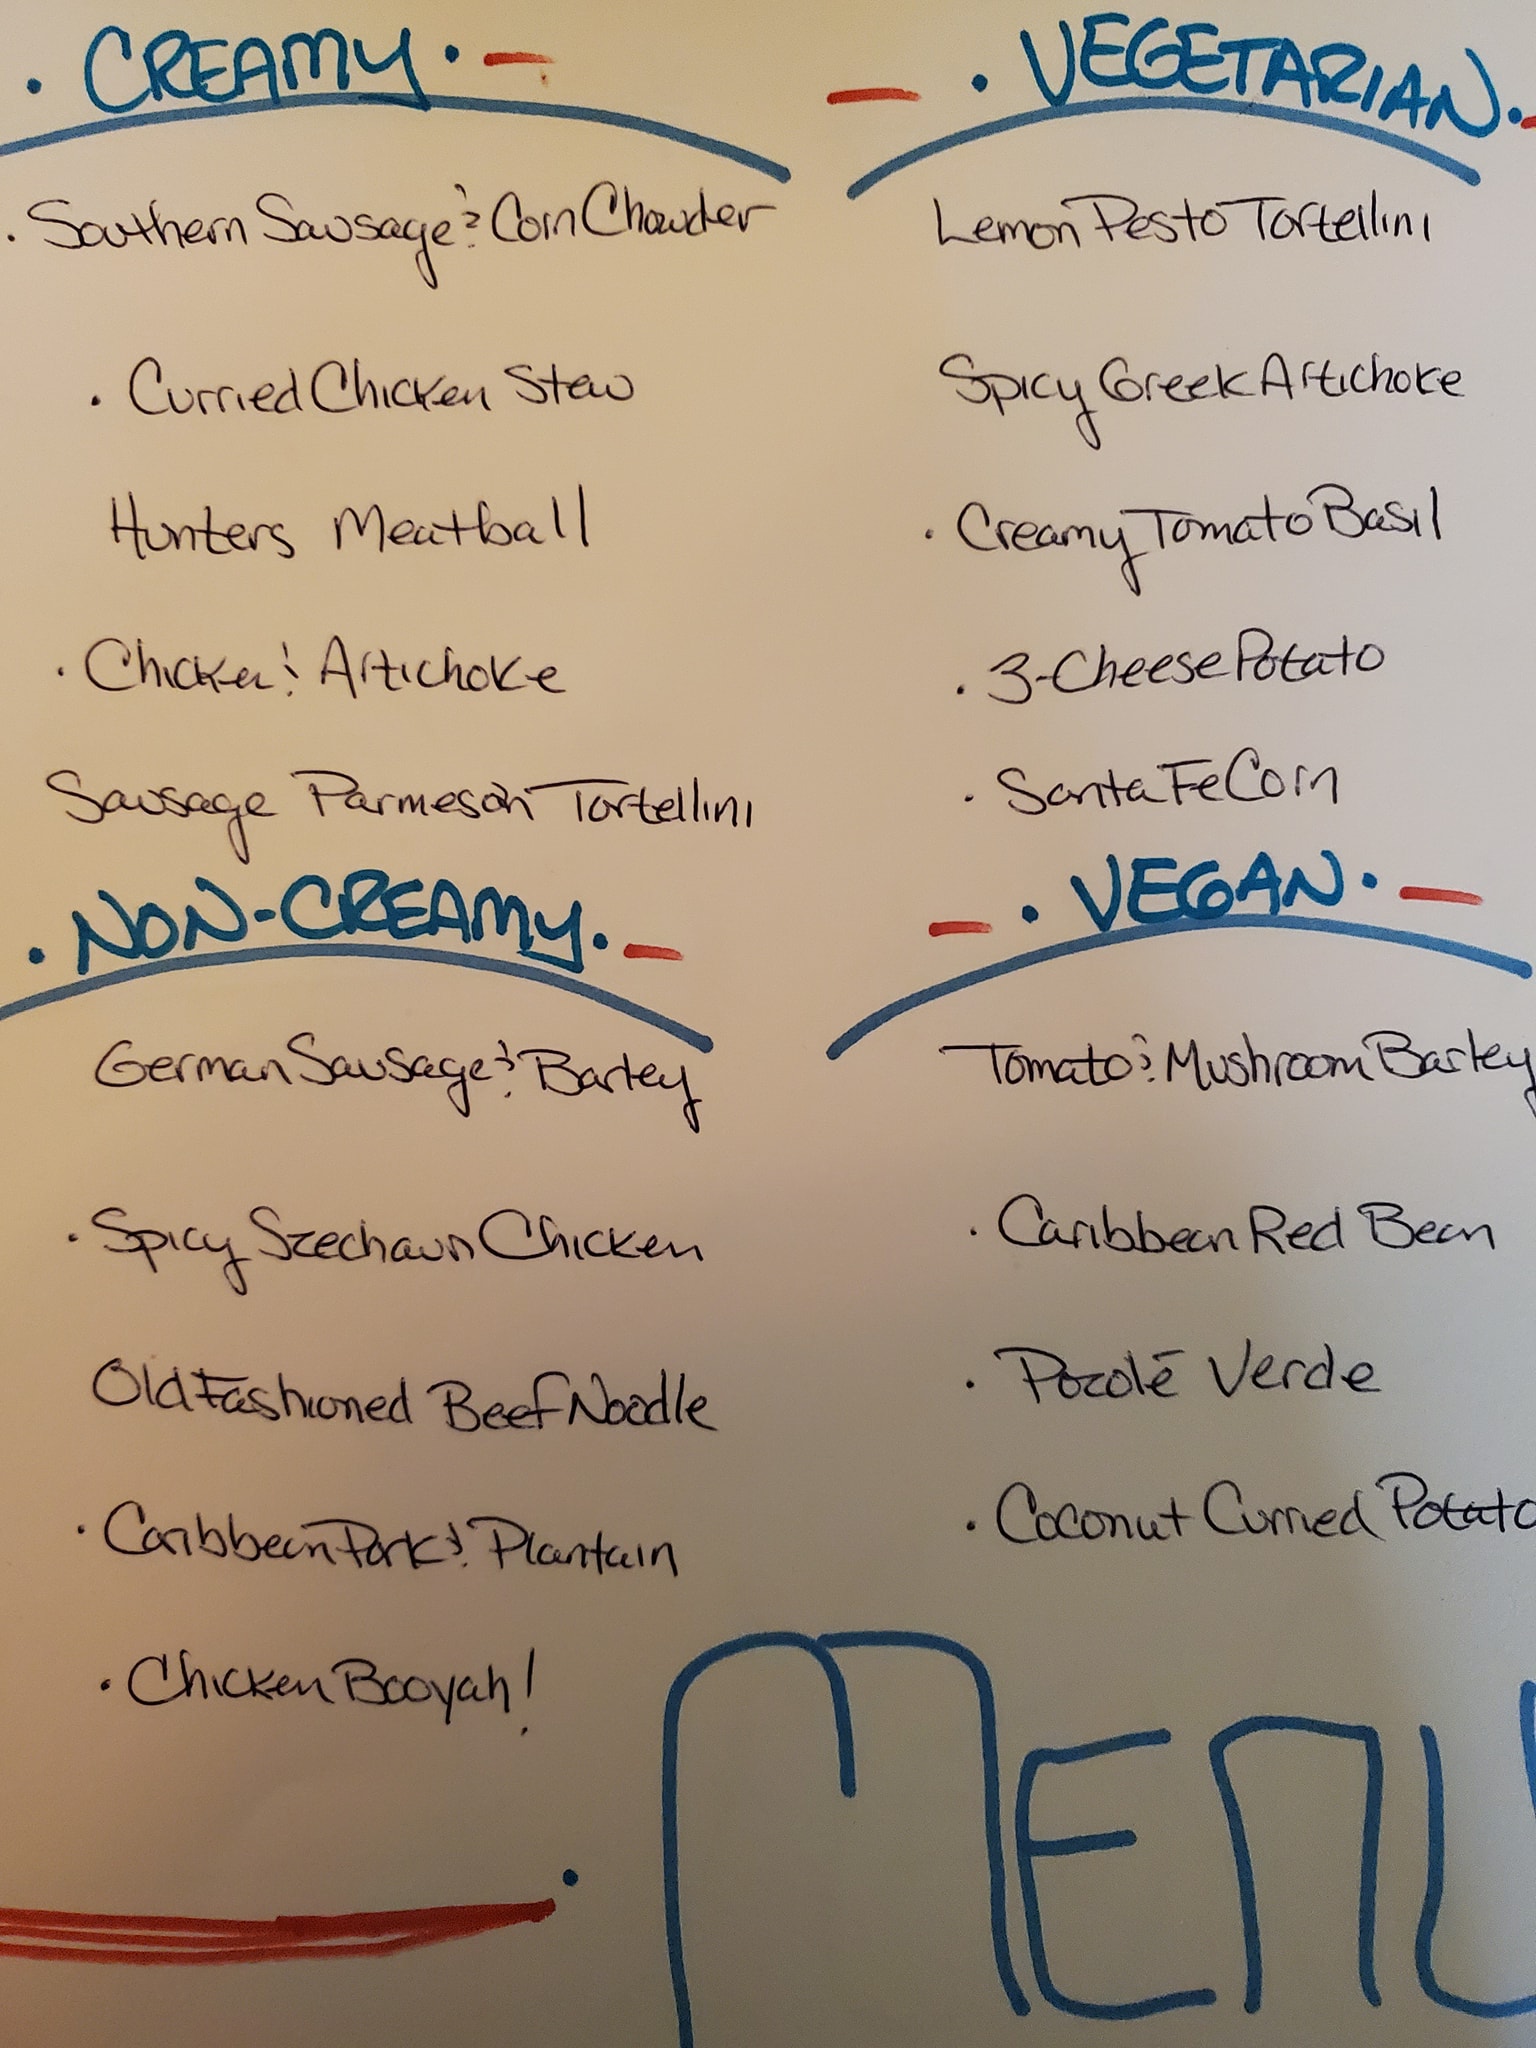 · CREAMY · -
· Southern Sausage & Corn Chowder
· Curried Chicken Stew
Hunters Meatball
· Chicken & Artichoke
Sausage Parmesan Tortellini
· NON-CREAMY · -
German Sausage & Barley
· Spicy Szechaun Chicken
Old Fashioned Beef Noodle
· Caribbean Pork & Plantain
· Chicken Booyah!
- · VEGETARIAN · -
Lemon Pesto Tortellini
Spicy Greek Artichoke
· Creamy Tomato Basil
· 3-Cheese Potato
· Santa Fe Corn
- · VEGAN · -
Tomato & Mushroom Barley
· Caribbean Red Bean
· Pozolé Verde
· Coconut Curried Potato
· MENU